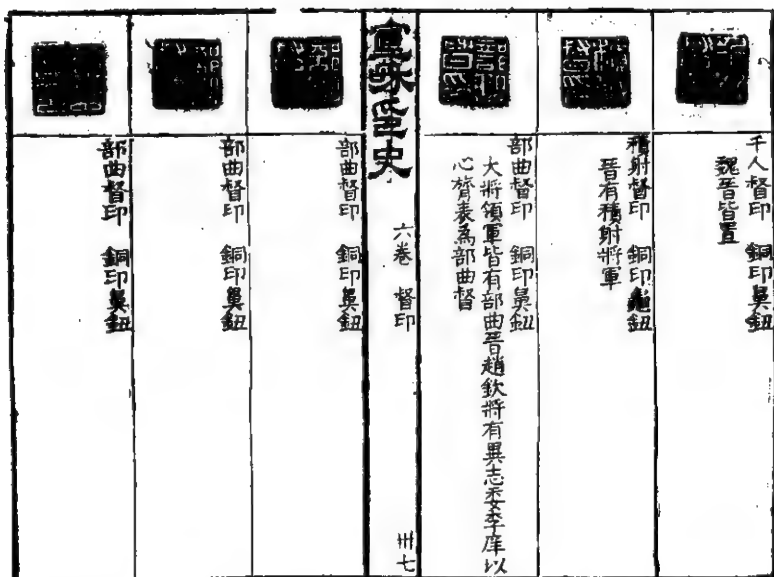 千人督印 銅印鼻鈕
魏晉皆置
積射督印 銅印龜鈕
晉有積射將軍
部曲督印 銅印鼻鈕
大將領軍皆有部曲晉趙欽將有異志委李庠以
心膂表為部曲督
宣和印史 六卷 督印 卅七
部曲督印 銅印鼻鈕
部曲督印 銅印鼻鈕
部曲督印 銅印鼻鈕